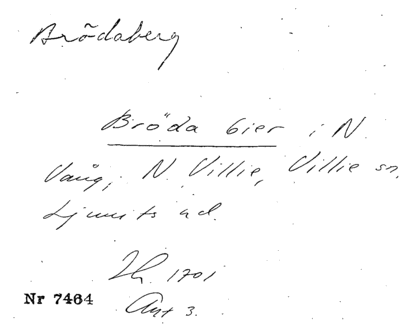 Brödaberg
Bröda bier i N
Vång, N Villie, Villie sn,
Ljunits hd.
Lh. 1701
Nr 7464
Akt 3.